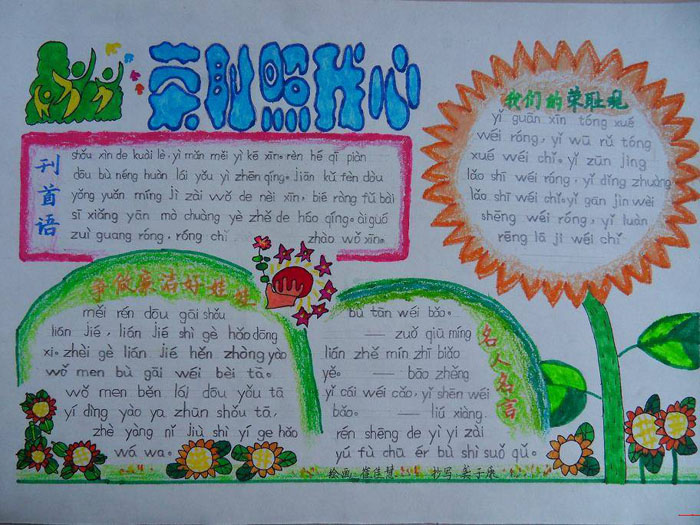 荣耻照我心
刊首语
shǒu xìn de kuài lè, yì mǎn měi yì kē xīn. rèn hé qī piàn
dōu bù néng huàn lái yǒu yì zhēn qíng. jiān kǔ fèn dòu
yǒng yuǎn míng jì zài wǒ de nèi xīn, bié ràng fǔ bài
sī xiǎng yān mò chuàng yè zhě de háo qíng. ài guó
zuì guang róng, róng chǐ zhào wǒ xīn.
我们的荣耻观
yǐ guān xīn tóng xué
wéi róng, yǐ wū rǔ tóng
xué wéi chǐ. yǐ zūn jìng
lǎo shī wéi róng, yǐ dǐng zhuàng
lǎo shī wéi chǐ. yǐ gǎn jìn wèi
shēng wéi róng, yǐ luàn
rēng lā jī wéi chǐ
争做廉洁好娃娃
měi rén dōu gāi shǒu
lián jié, lián jié shì gè hǎo dōng
xi. zhèi gè lián jié hěn zhòng yào
wǒ men bù gāi wéi bèi tā.
wǒ men běn lái dōu yǒu tā
yí dìng yào ya zhūn shǒu tā,
zhè yàng nǐ jiù shì yí ge hǎo
wá wa.
名人名言
bù tān wéi bǎo.
—— zuǒ qiū míng
lián zhě mín zhī biǎo
yě. —— bāo zhěng
yǐ cái wéi cǎo, yǐ shēn wéi
bǎo. —— liú xiàng
rén shēng de yì yì zài
yú fù chū ér bù shì suǒ qǔ.
绘画 崔佳慧 抄写 姜子康